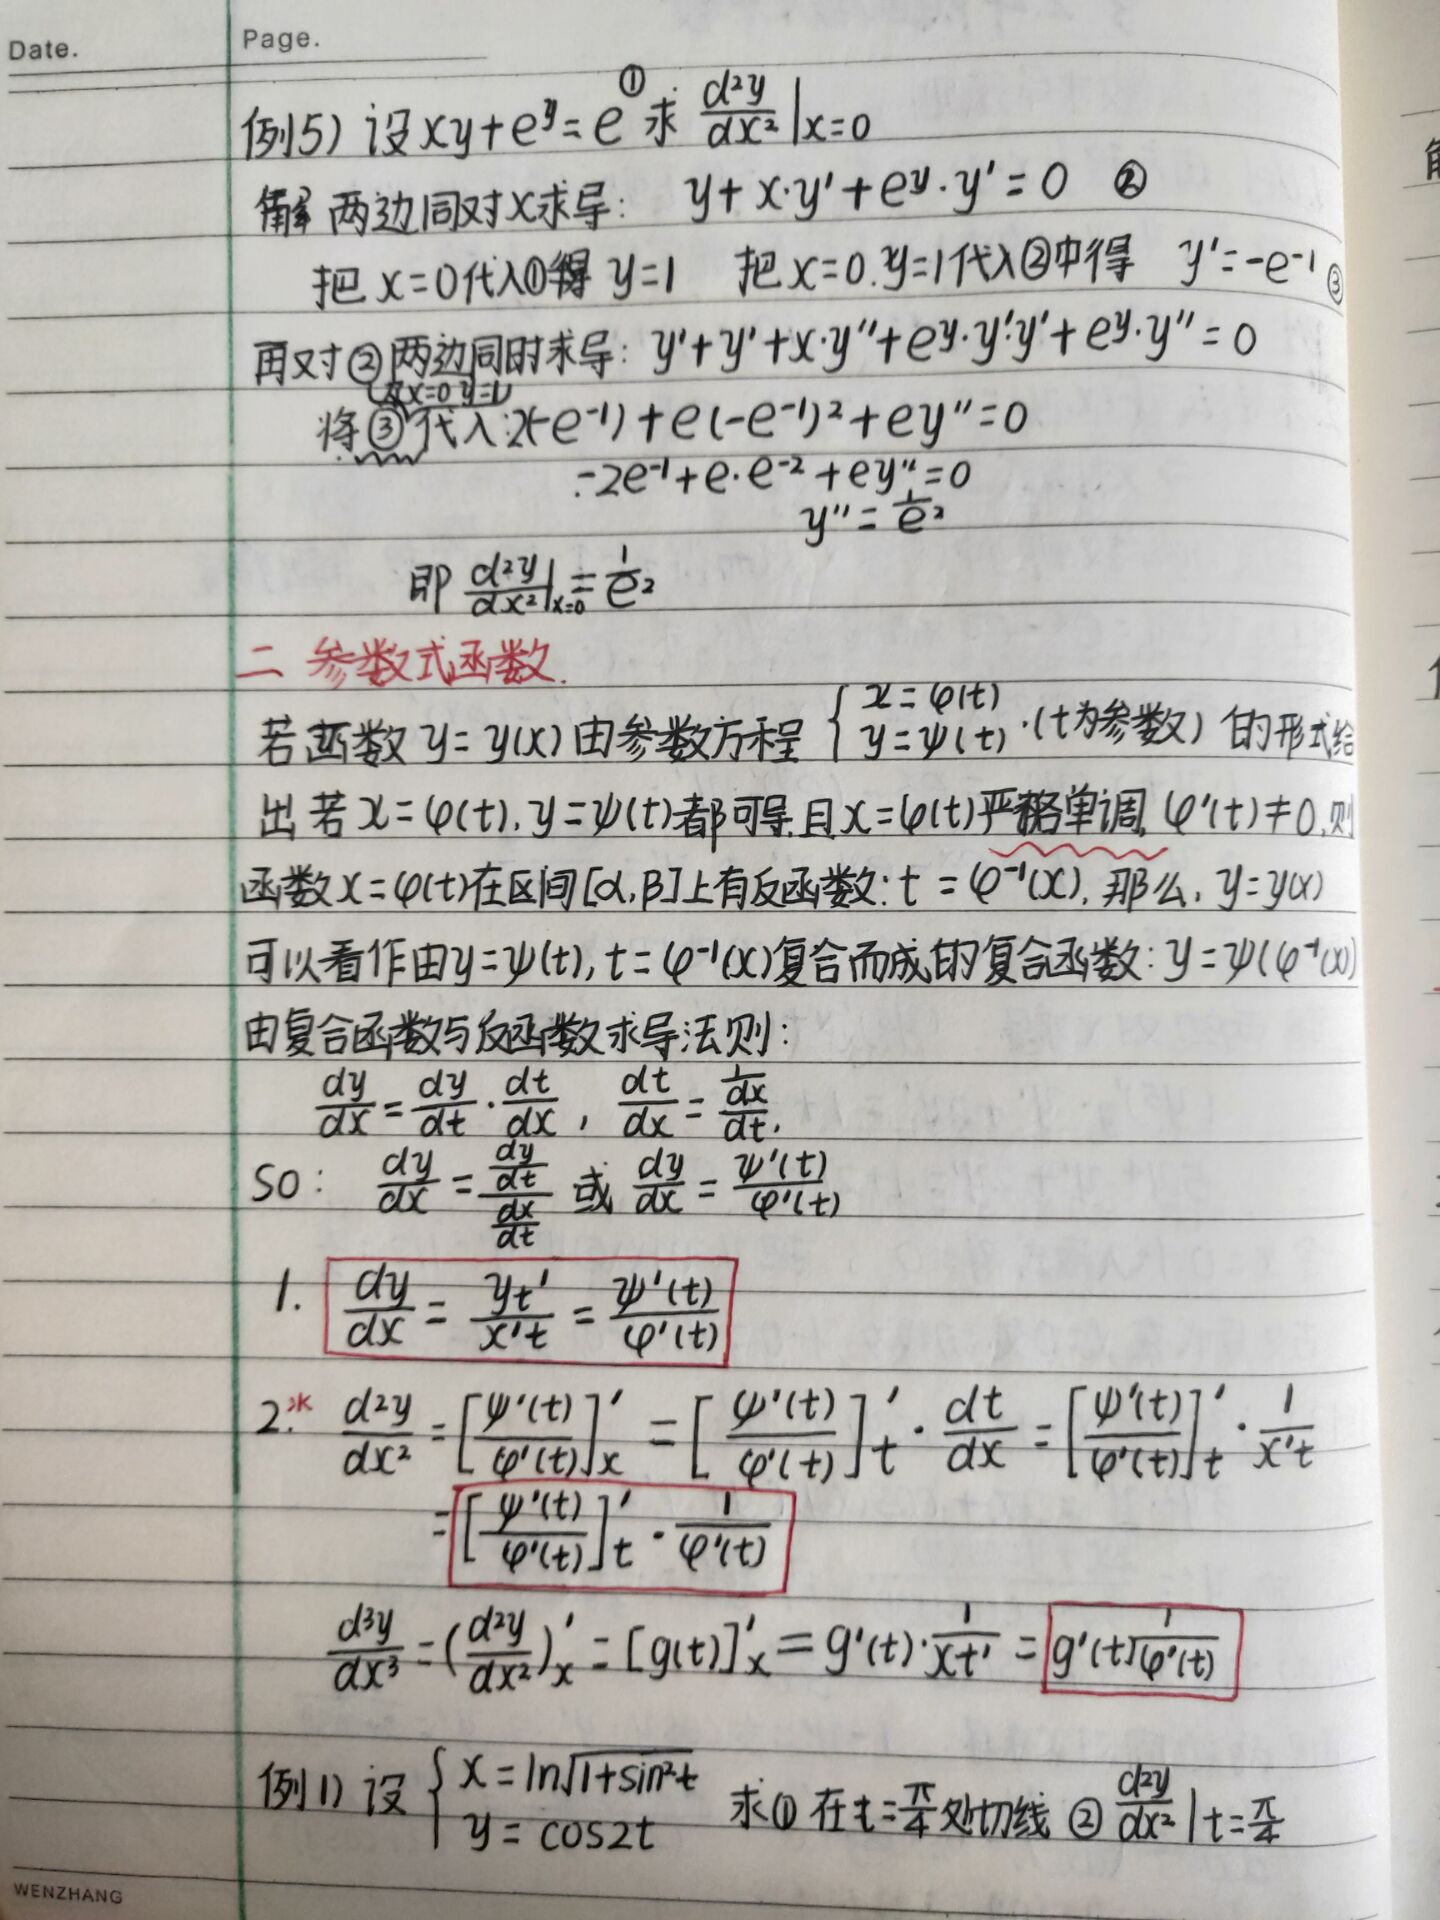 Date.
Page.
例5) 设 xy+e^y=e ① 求 d²y/dx² |x=0
解 两边同对x求导: y+x·y'+e^y·y'=0 ②
把 x=0代入①得 y=1 把 x=0.y=1代入②中得 y'=-e^-1 ③
再对②两边同时求导: y'+y'+x·y''+e^y·y'·y'+e^y·y''=0
(及x=0 y=1)
将③代入:2(-e^-1)+e(-e^-1)²+ey''=0
-2e^-1+e·e^-2+ey''=0
y''=1/e²
即 d²y/dx²|x=0=1/e²
二 参数式函数.
若函数 y=y(x) 由参数方程 { x=φ(t) y=ψ(t) .(t为参数) 的形式给
出 若 x=φ(t), y=ψ(t)都可导,且x=φ(t)严格单调, φ'(t)≠0,则
函数x=φ(t)在区间[α,β]上有反函数: t=φ^-1(x), 那么, y=y(x)
可以看作由y=ψ(t), t=φ^-1(x)复合而成的复合函数: y=ψ(φ^-1(x))
由复合函数与反函数求导法则:
dy/dx=dy/dt·dt/dx, dt/dx=1/(dx/dt).
SO: dy/dx=(dy/dt)/(dx/dt) 或 dy/dx=ψ'(t)/φ'(t)
1. dy/dx=yt'/x't=ψ'(t)/φ'(t)
2.※ d²y/dx²=[ψ'(t)/φ'(t)]'x=[ψ'(t)/φ'(t)]'t·dt/dx=[ψ'(t)/φ'(t)]'t·1/x't
=[ψ'(t)/φ'(t)]'t·1/φ'(t)
d³y/dx³=(d²y/dx²)'x=[g(t)]'x=g'(t)·1/xt'=g'(t)1/φ'(t)
例1) 设 { x=ln√(1+sin²t) y=cos2t 求① 在t=π/4处切线 ② d²y/dx²|t=π/4
WENZHANG